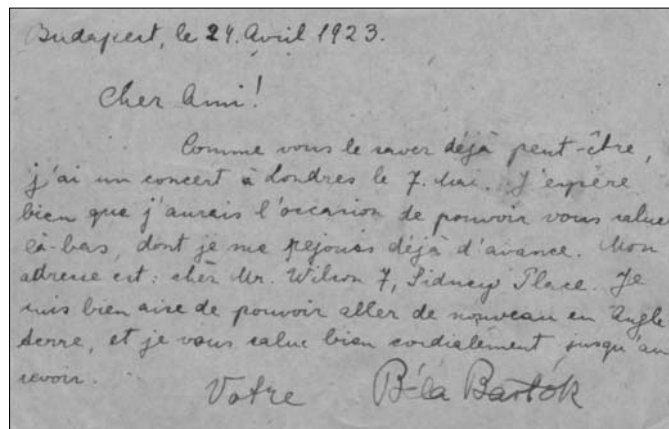 Budapest, le 24. Avril 1923.
Cher Ami!
Comme vous le savez déjà peut-être,
j'ai un concert à Londres le 7. Mai. J'espère
bien que j'aurais l'occasion de pouvoir vous saluer
là-bas, dont je me rejouis déjà d'avance. Mon
adresse est: chez Mr. Wilson 7, Sidney Place. Je
suis bien aise de pouvoir aller de nouveau en Angle
terre, et je vous salue bien cordialement jusqu'au
revoir.
Votre Béla Bartók